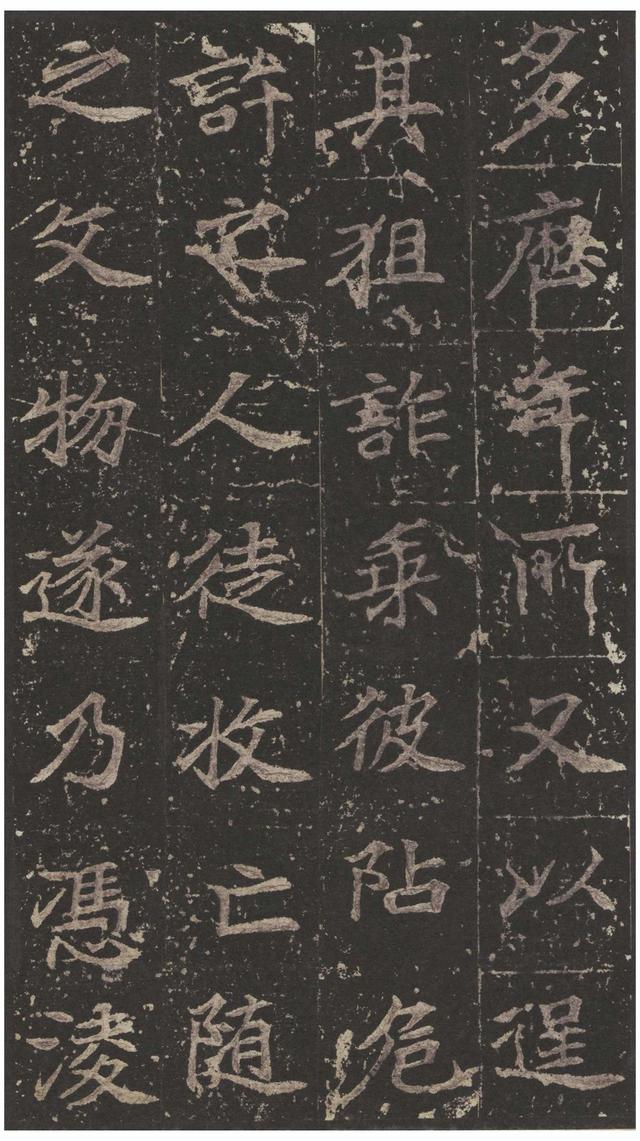 多歷年所又以逞
其狙詐乘彼阽危
許安人徒收亡随
之文物遂乃憑凌